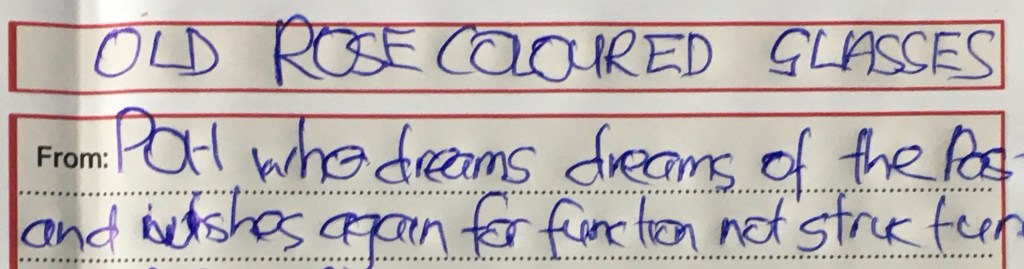 OLD ROSE COLOURED GLASSES
From: POH who dreams dreams of the Pas
and wishes again for function not structur